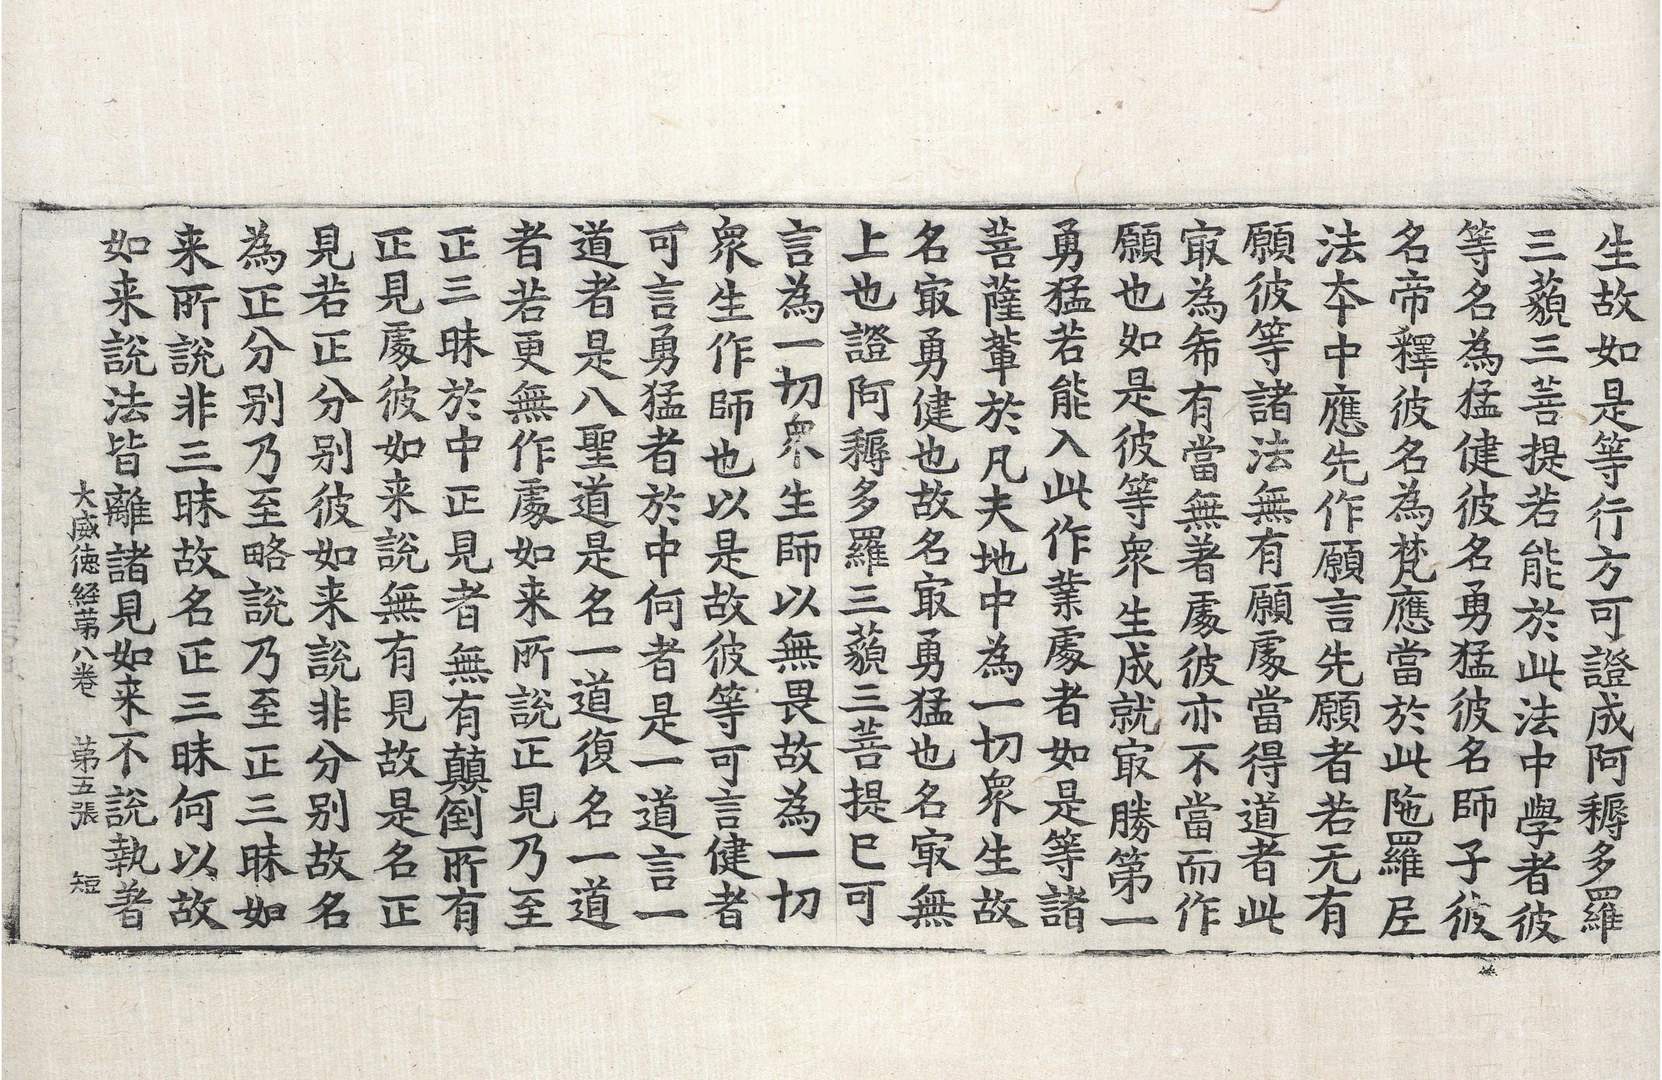 生故如是等行方可證成阿耨多羅
三藐三菩提若能於此法中學者彼
等名為猛健彼名勇猛彼名師子彼
名帝釋彼名為梵應當於此陁羅𡰱
法夲中應先作願言先願者若无有
願彼等諸法無有願處當得道者此
㝡為希有當無著處彼亦不當而作
願也如是彼等衆生成就㝡勝第一
勇猛若能入此作業處者如是等諸
菩薩輩於凡夫地中為一切衆生故
名㝡勇健也故名㝡勇猛也名㝡無
上也證阿耨多羅三藐三菩提已可
言為一切衆生師以無畏故為一切
衆生作師也以是故彼等可言健者
可言勇猛者於中何者是一道言一
道者是八聖道是名一道復名一道
者若更無作處如来所說正見乃至
正三昧於中正見者無有顛倒所有
正見處彼如来說無有見故是名正
見若正分別彼如来說非分別故名
為正分別乃至略說乃至正三昧如
来所說非三昧故名正三昧何以故
如来說法皆離諸見如来不說執著
大威徳経苐八巻　苐五張　短